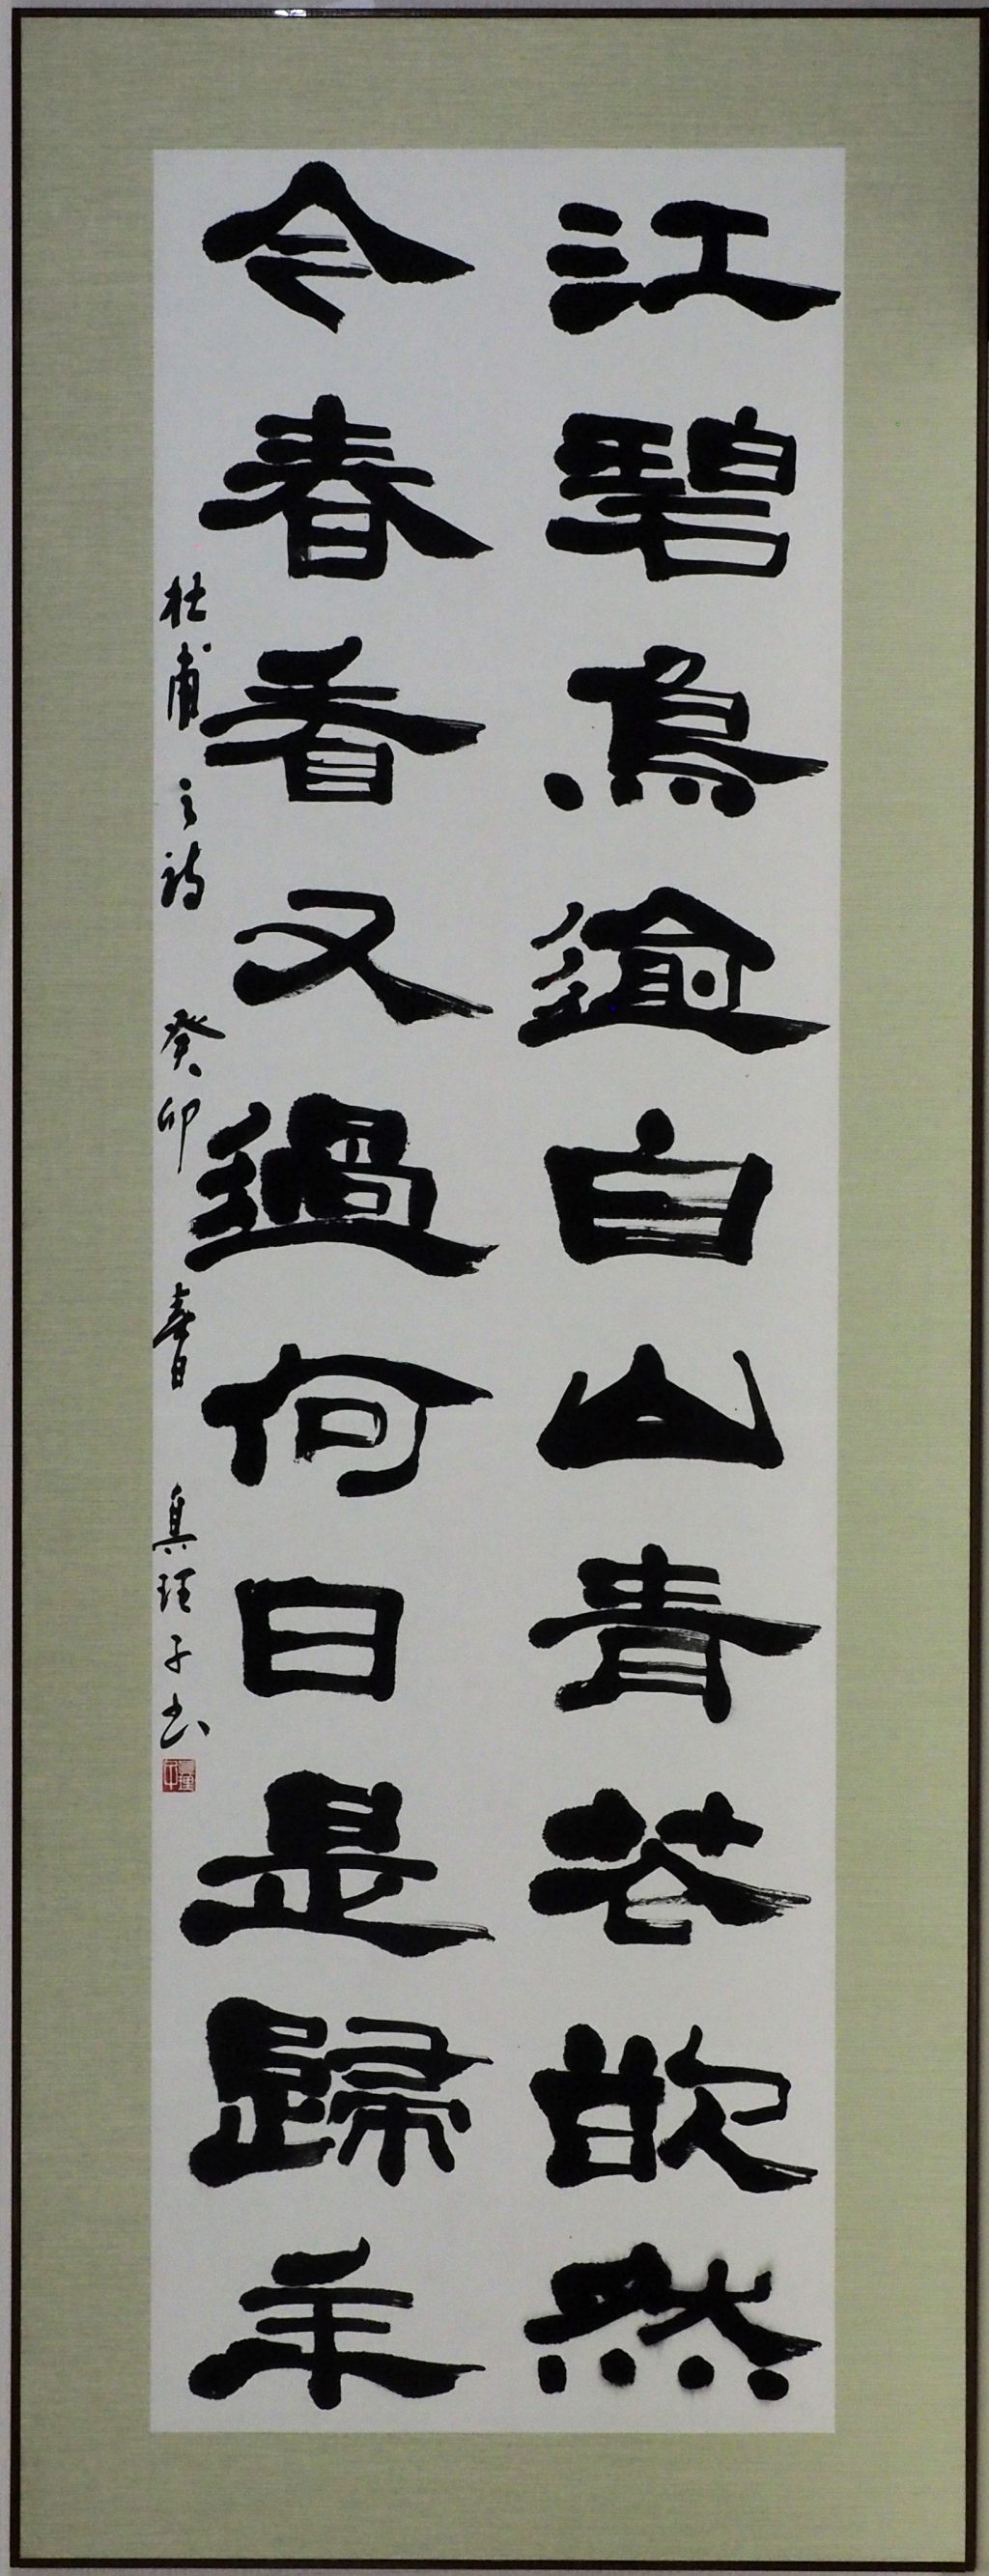 江碧鳥逾白山青花欲然
今春看又過何日是歸年
杜甫之詩 癸卯 春日 真理子書